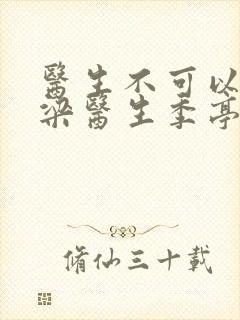 醫生不可以
梁醫生季亭
脩仙三十載